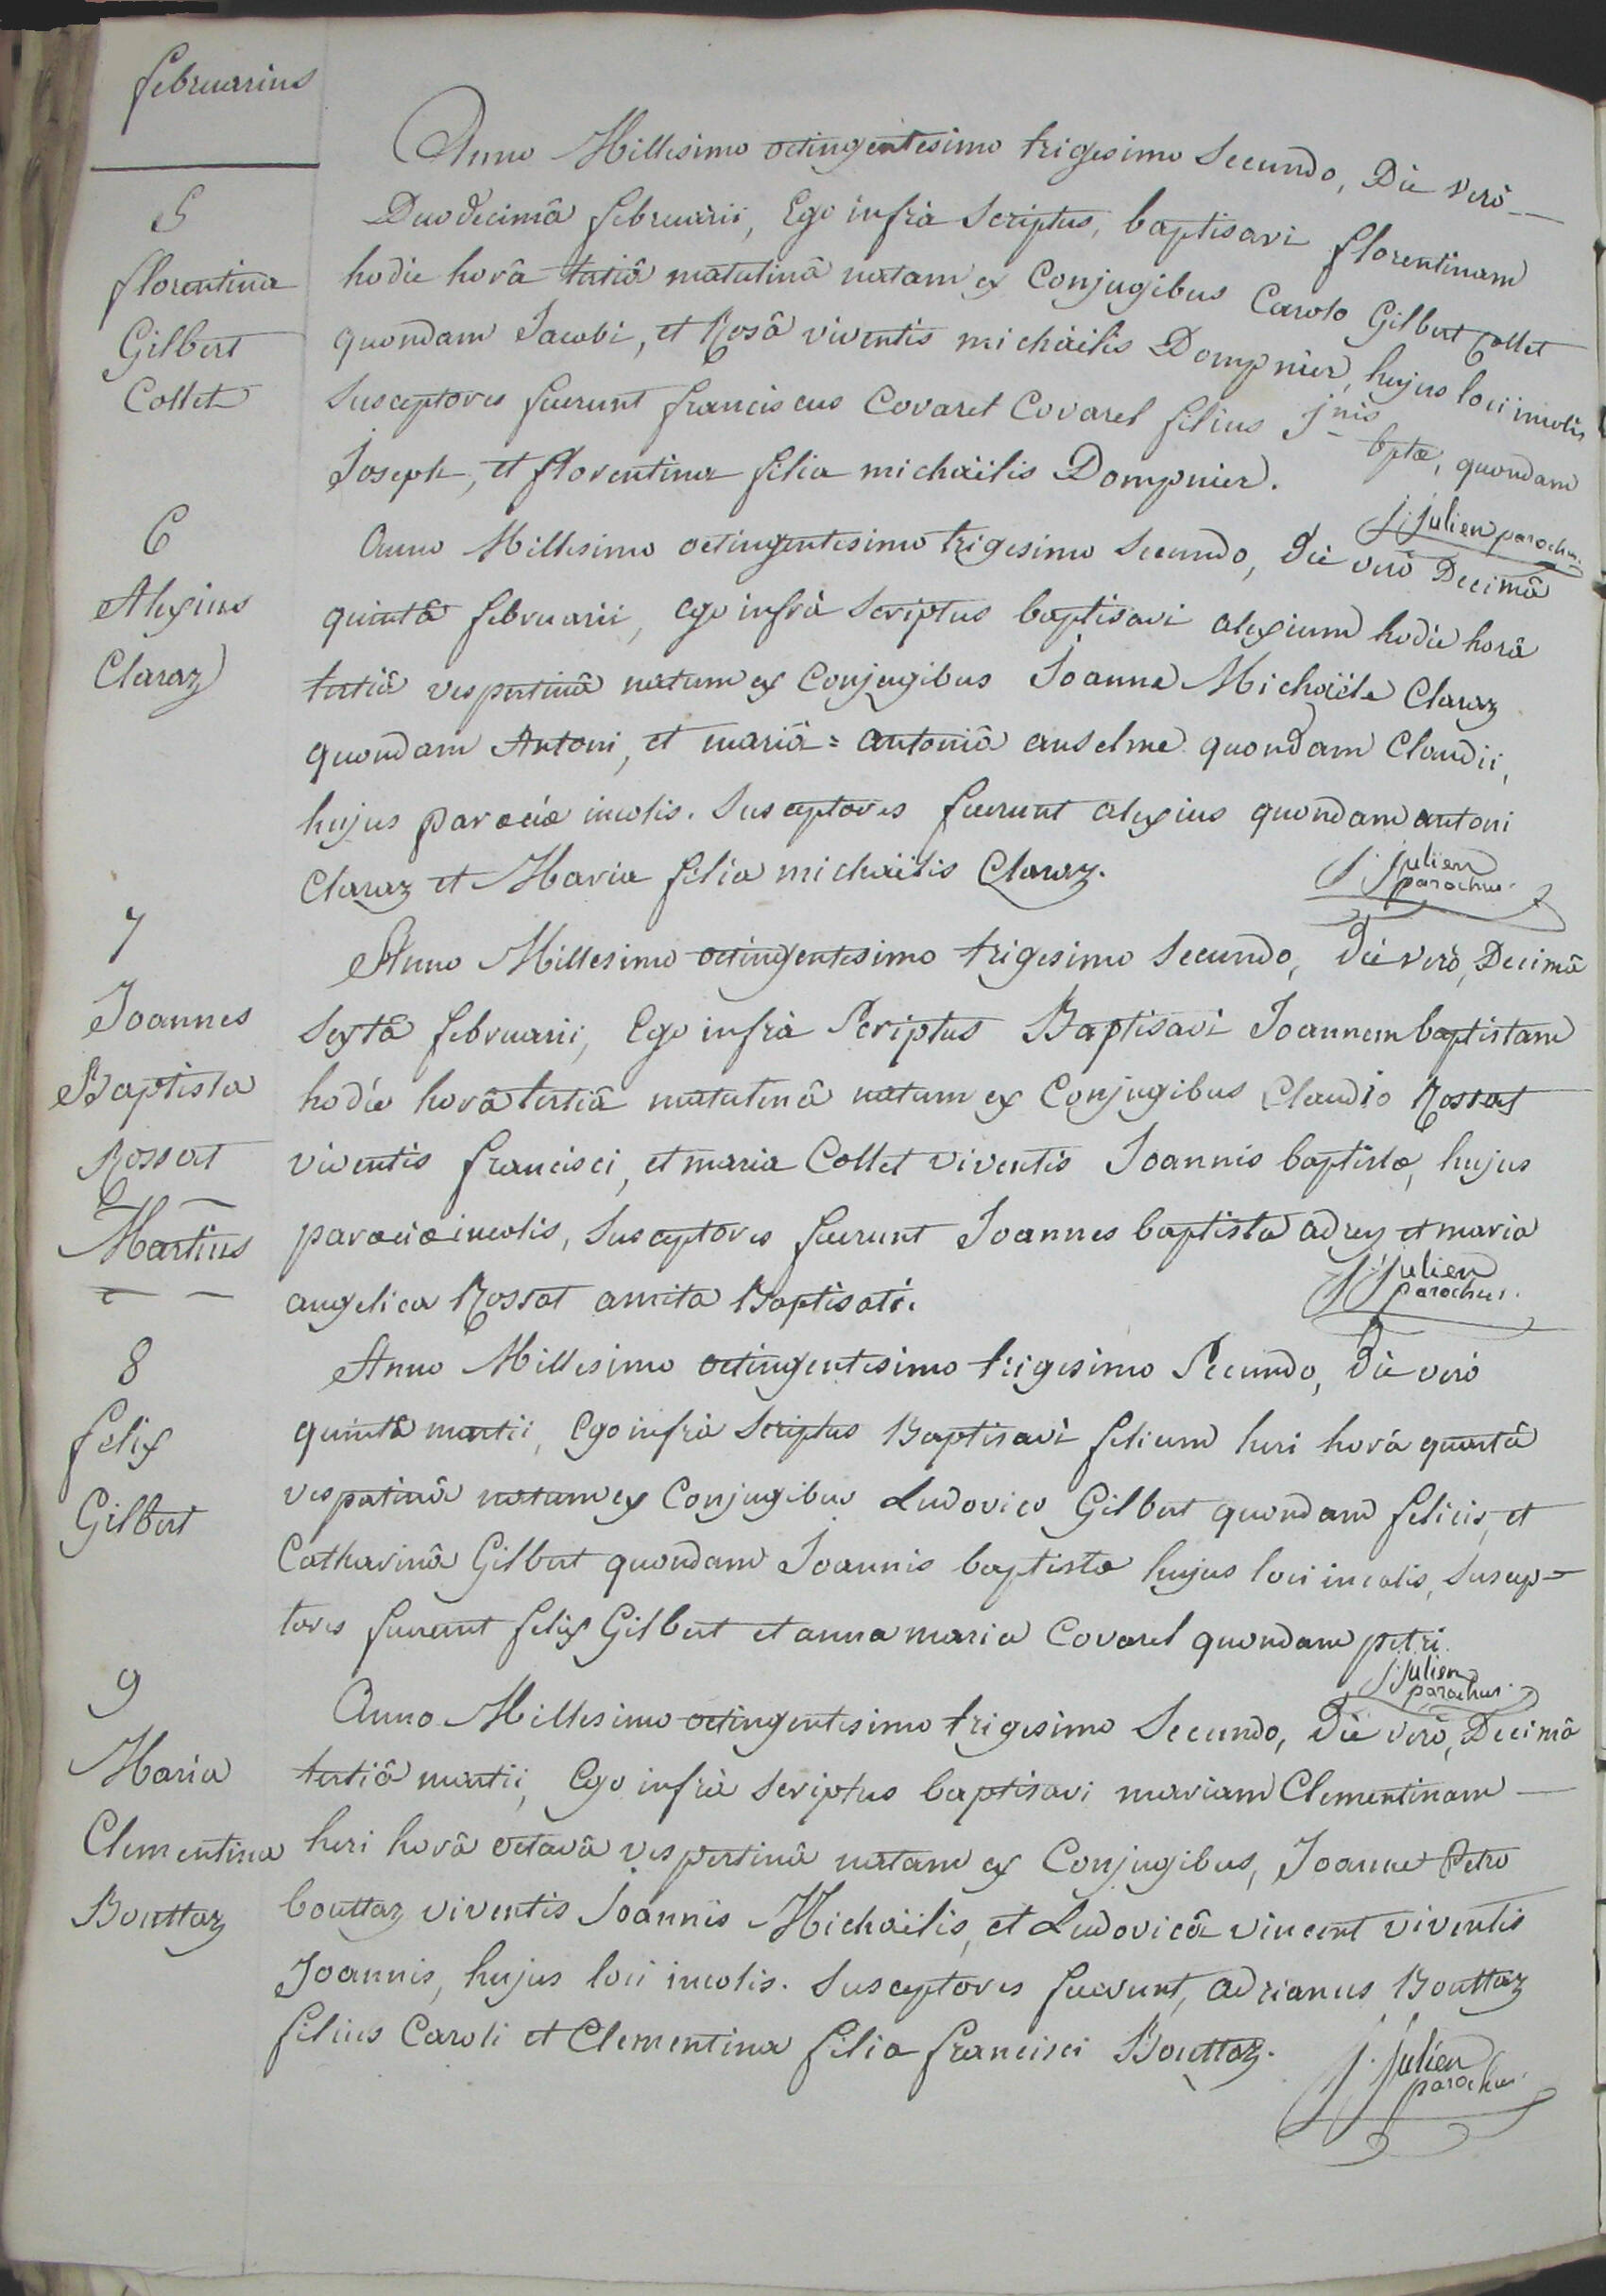 februarius
5
florentina
Gilbert
Collet
Anno Millesimo octingentesimo trigesimo Secundo, Die verò
Duodecimâ februarii, Ego infrà Scriptus, baptisavi florentinam
hodie horâ tertiâ matutinâ natam ex Conjugibus Carolo Gilbert Collet
quondam Jacobi, et Rosâ viventis michaëlis Dompnier, hujus loci incolis
Susceptores fuerunt franciscus Covaret Covarel filius Jnis bptæ, quondam
Joseph, et florentina filia michaëlis Dompnier.
J. Julien parochus
6
Alexius
Claraz
Anno Millesimo octingentesimo trigesimo Secundo, die verò Decimâ
quintâ februarii, ego infrà Scriptus baptisavi alexium hodie horâ
tertiâ vespertinâ natum ex Conjugibus Joanne Michaële Claraz
quondam Antoni, et mariâ = antoniâ anselme quondam Claudii,
hujus parœciæ incolis. Susceptores fuerunt alexius quondam antoni
Claraz et Maria filia michaëlis Claraz.
J. Julien
parochus.
7
Joannes
Baptista
Rossat
Anno Millesimo octingentesimo trigesimo Secundo, die verò, Decimâ
Sextâ februarii, Ego infrà Scriptus Baptisavi Joannem baptistam
hodie horâ tertiâ matutinâ natum ex Conjugibus Claudio Rossat
viventis francisci, et maria Collet viventis Joannis baptistæ, hujus
parœciæ incolis, Susceptores fuerunt Joannes baptista adrey et maria
angelica Rossat amita Baptisati.
J. Julien
parochus.
Martius
8
felix
Gilbert
Anno Millesimo octingentesimo trigesimo Secundo, die verò
quintâ martii, Ego infrà Scriptus Baptisavi felicem heri horâ quartâ
vespertinâ natum ex Conjugibus Ludovico Gilbert quondam felicis, et
Catharinâ Gilbert quondam Joannis baptistæ hujus loci incolis, Suscep=
tores fuerunt felix Gilbert et anna maria Covarel quondam petri.
J. Julien
parochus.
9
Maria
Clementina
Bouttaz
Anno Millesimo octingentesimo trigesimo Secundo, Die verò, Decimâ
tertiâ martii, Ego infrà Scriptus baptisavi mariam Clementinam
heri horâ octavâ vespertinâ natam ex Conjugibus, Joanne Petro
bouttaz viventis Joannis Michaëlis, et Ludovicâ vincent viventis
Joannis, hujus loci incolis. Susceptores fuerunt, adrianus Bouttaz
filius Caroli et Clementina filia francisci Bouttaz.
J. Julien
parochus.